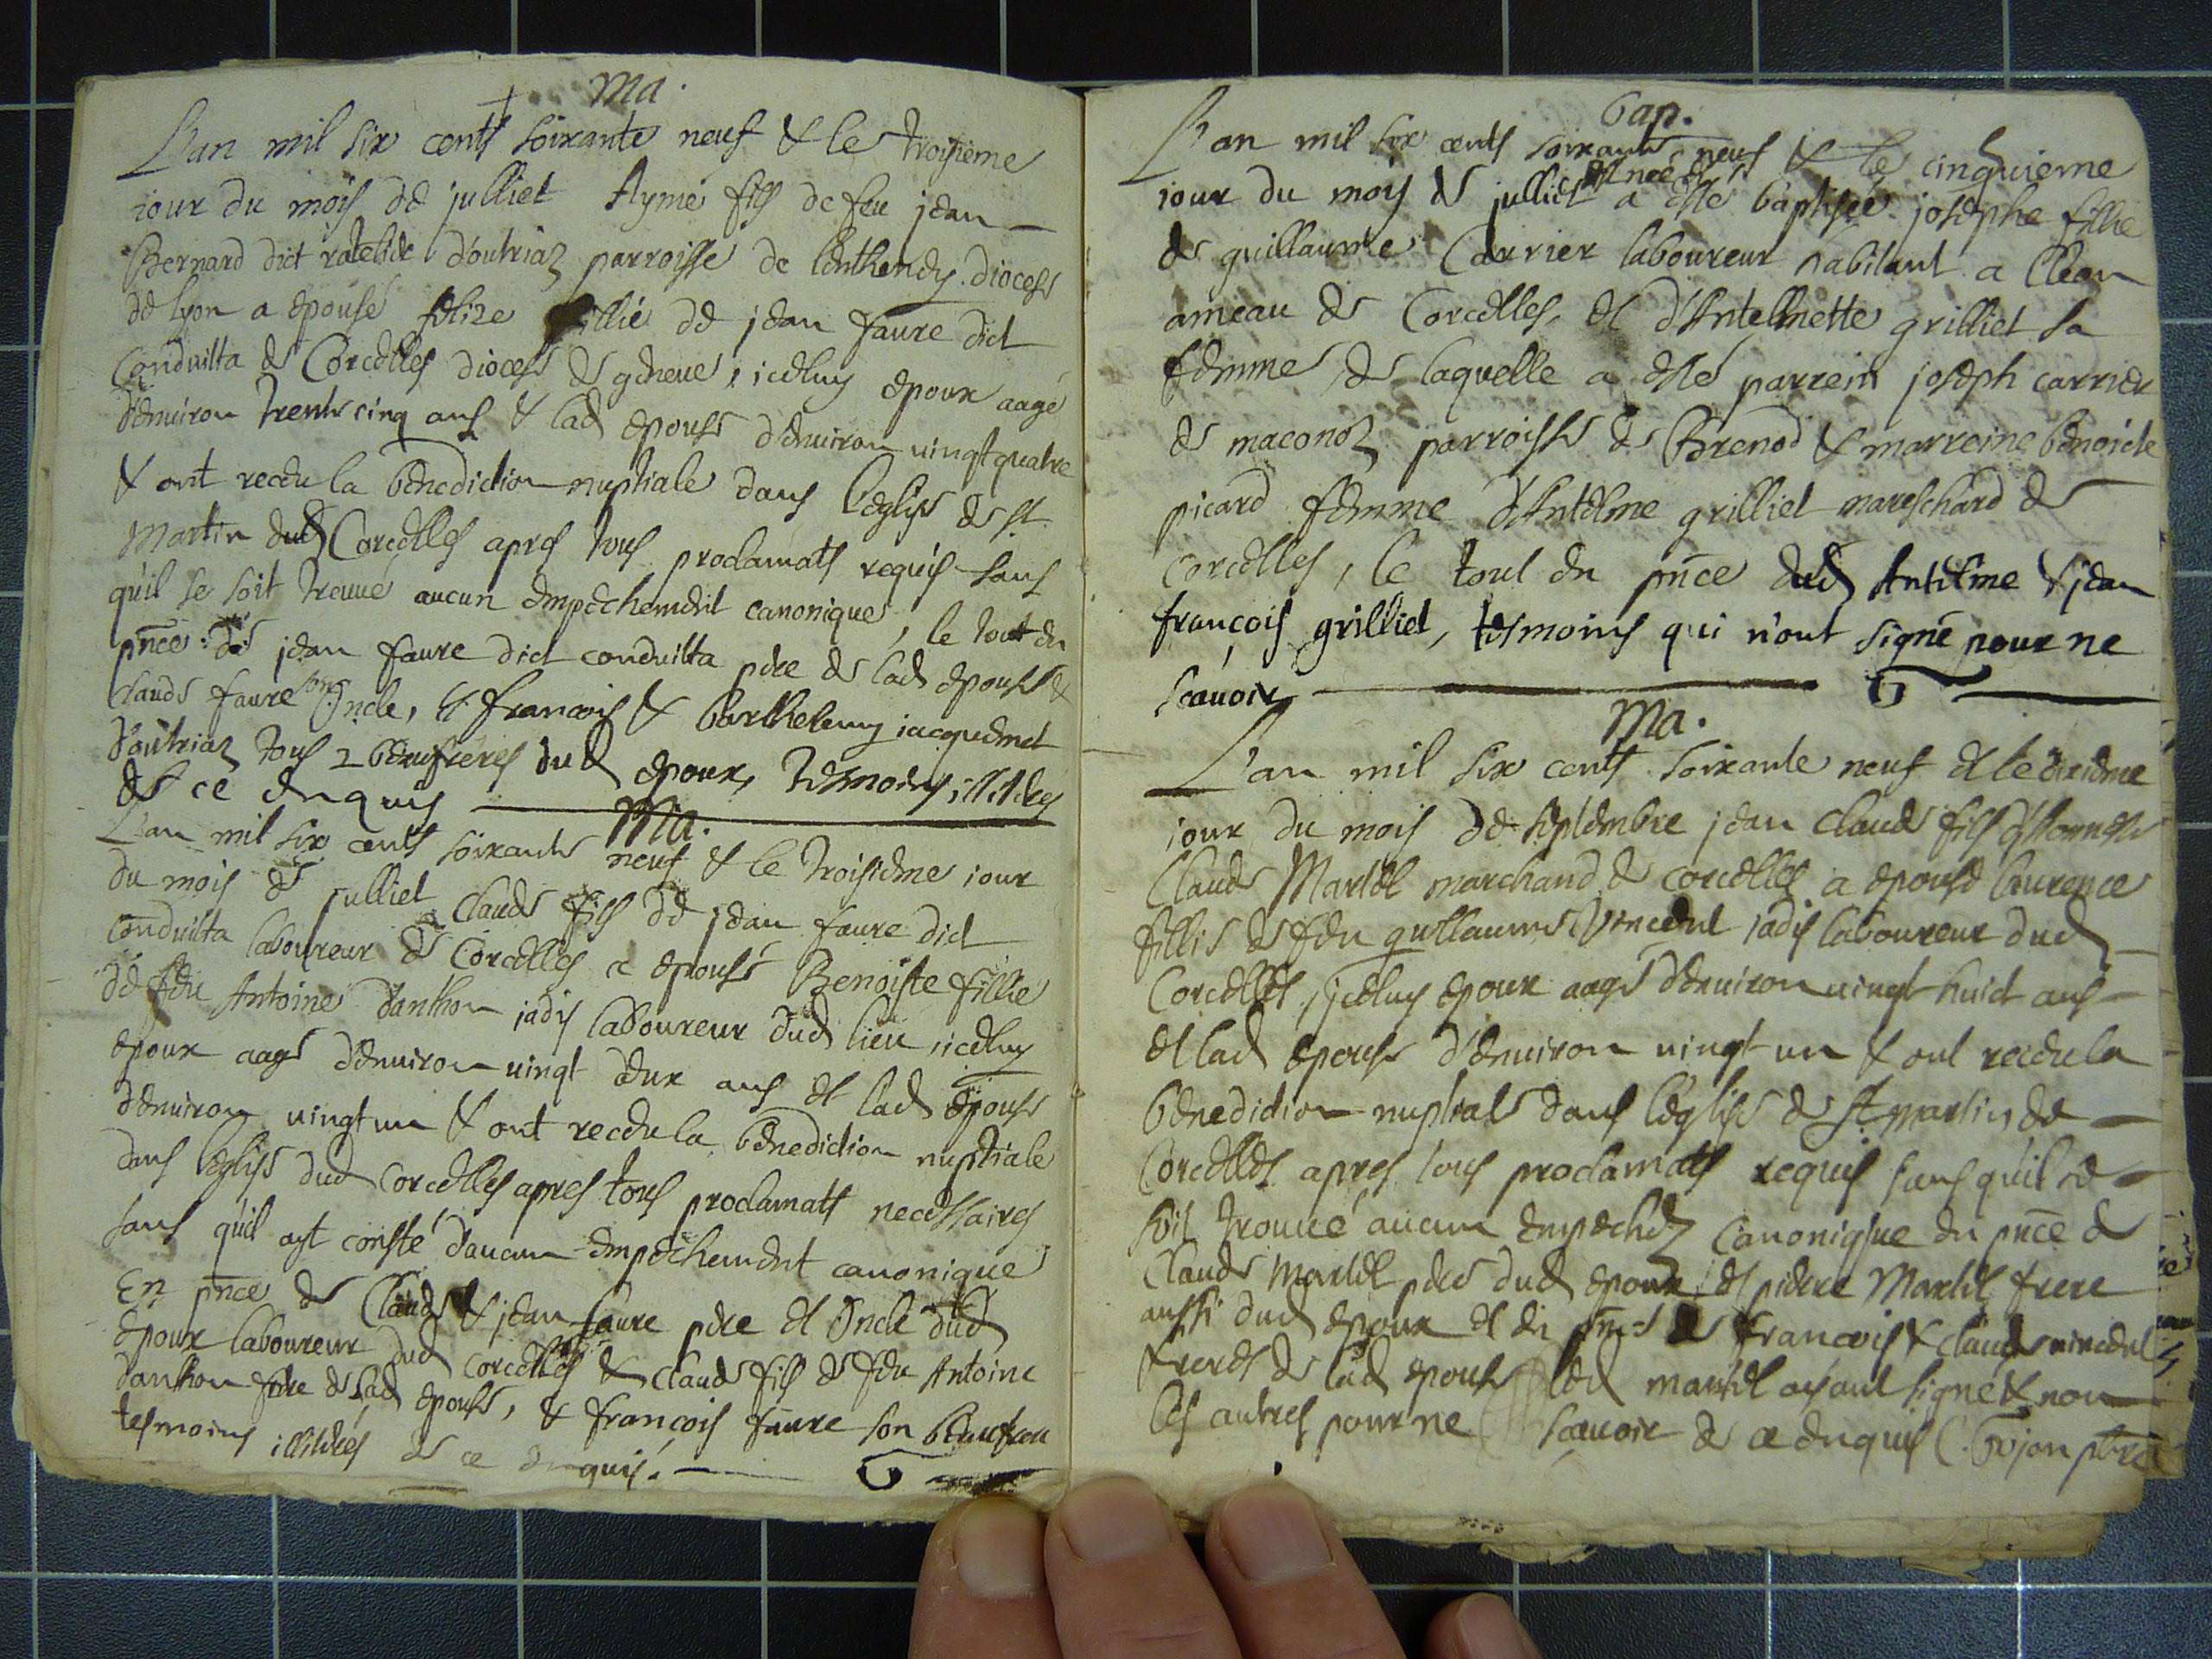 Ma.
L'an mil six cents soixante neuf & le troisieme
iour du mois de julliet Aymé fils de feu jean
Bernard dict d'outriaz parroisse de Lenthenay diocese
de lyon a epousé felize fillie de jean faure dict
Conduilta de Corcelles diocese de geneue, iceluy epoux aagé
d'enuiron trente cinq ans & lad epouse d'enuiron uingtquatre
& ont receu la benediction nuptiale dans l'eglise de st
Martin dud Corcelles apres tous proclamats requis sans
qu'il se soit treuué aucun empechement canonique, le tout en
pnce de jean faure dict conduilta pere de lad epouse &
claude faure son Oncle, & francois & barthelemy iacquemet
d'outriaz tous 2 beaufreres dud epoux, tesmoins illiteres
de ce enquis
Ma.
L'an mil six cents soixante neuf & le troisieme iour
du mois de julliet claude fils de jean faure dict
conduilta laboureur de Corcelles a epousé Benoiste fillie
de feu Antoine d'anthon jadis laboureur dud lieu, iceluy
epoux aagé d'enuiron uingt deux ans et lad epouse
d'enuiron uingt un & ont receu la benediction nuptiale
dans l'eglise dud corcelles apres tous proclamats necessaires
sans qu'il ayt consté d'aucun empechement canonique
En pnce de Claude & jean faure pere et Oncle dud
epoux laboureur dud corcelles & claude fils de feu Antoine
danthon frere de lad epouse, & francois faure son beaufrere
tesmoins illiteres de ce enquis.
bap.
L'an mil six cents soixante neuf & le cinquieme
iour du mois de julliet est née & a esté baptisée josephe fillie
de guillaume Carrier laboureur habitant a Cleon
ameau de Corcelles, et d'Antelmette grilliet sa
femme, de laquelle a esté parrein joseph carrier
de maconoz parroisse de Brenod & marreine benoicte
picard femme d'Antelme grilliet mareschard de
corcelles, le tout en pnce dud Antelme & jean
françois grilliet, tesmoins qui n'ont signé pour ne
scauoir
Ma.
L'an mil six cents soixante neuf et le dixieme
iour du mois de septembre jean claude fils d'honneste
Claude Martel marchand de corcelles a epousé laurence
fillie de feu guillaume Vincent jadis laboureur dud
Corcelles, iceluy epoux aagé d'enuiron uingt huict ans
et lad epouse d'enuiron uingt un & ont receu la
benediction nuptiale dans l'eglise de st martin de
Corcelles apres tous proclamats requis sans qu'il se
soit trouué aucun empechez canonique en pnce de
Claude Martel pere dud epoux, et pierre Martel frere
aussi dud epoux et en pnce de francois & claude uincent
freres de lad epouse led martel ayant signé & non
les autres pour ne scauoir de ce enquis C. Goujon pbre